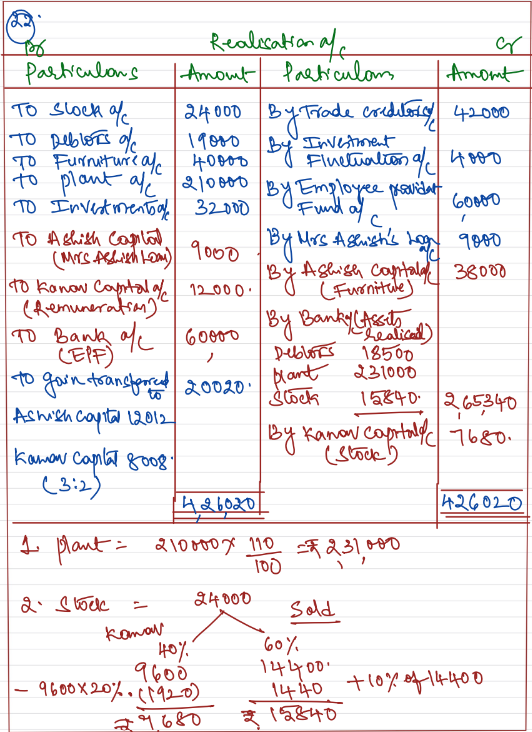 22.
Dr Realisation a/c Cr
Particulars Amount Particulars Amount
To Stock a/c 24000 By Trade creditors a/c 42000
To Debtors a/c 19000 By Investment
To Furniture a/c 40000 Fluctuation a/c 4000
To plant a/c 210000 By Employee provident
To Investments a/c 32000 Fund a/c 60000
To Ashish Capital 9000 By Mrs Ashish's Loan a/c 9000
(Mrs Ashish Loan) By Ashish Capital a/c 38000
To Kanav Capital a/c 12000. (Furniture)
(Remuneration) By Bank (Assets
To Bank a/c 60000 realised)
(EPF) Debtors 18500
To gain transferred plant 231000
to 20020. Stock 15840. 2,65,340
Ashish Capital 12012 By Kanav Capital a/c 7680.
Kanav Capital 8008. (Stock)
(3:2)
4,26,020 426020
1. plant = 210000 x 110/100 = ₹ 231,000
2. Stock = 24000 Sold
Kanav
40% 60%
9600 14400.
- 9600x20%. (1920) 1440 +10% of 14400
₹ 7680 ₹ 15840